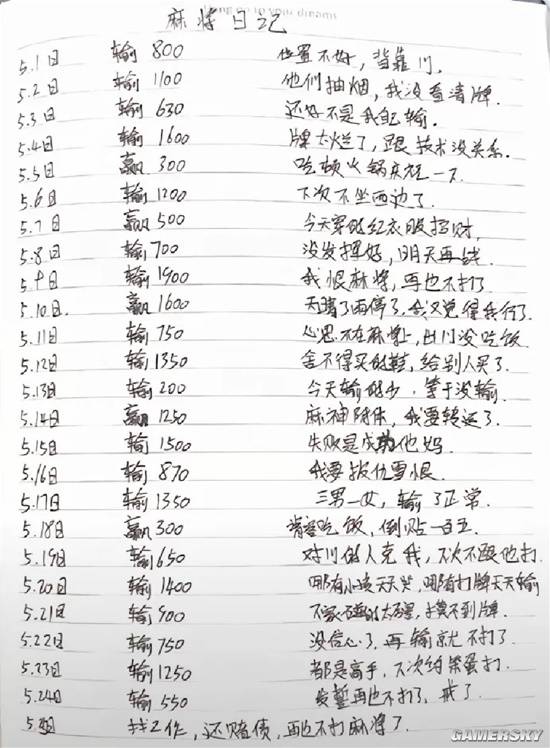 麻将日记
5.1日 输800 位置不好，背靠门.
5.2日 输1100 他们抽烟，我没看清牌.
5.3日 输630 还好不是我自己输.
5.4日 输1600 牌太烂了，跟技术没关系.
5.5日 赢300 吃顿火锅庆祝一下
5.6日 输1200 下次不坐西边了.
5.7日 赢500 今天穿的红衣服招财.
5.8日 输700 没发挥好，明天再战
5.9日 输1900 我恨麻将，再也不打了
5.10日. 赢1600 天晴了雨停了，我又觉得我行了
5.11日 输750 心思不在麻将上，出门没吃饭
5.12日 输1350 舍不得买的鞋，给别人买了.
5.13日 输200 今天输的少，等于没输.
5.14日 赢1250 麻神附体，我要转运了.
5.15日 输1500 失败是成功他妈
5.16日 输870 我要报仇雪恨.
5.17日 输1350 三男一女，输了正常.
5.18日 赢300 请客吃饭，倒贴一百五.
5.19日 输650 对门的人克我，下次不跟他打.
5.20日 输1400 哪有小孩天天哭，哪有打牌天天输
5.21日 输900 摸不到牌.
5.22日 输750 没信心了，再输就不打了.
5.23日 输1250 都是高手，下次约菜蛋打.
5.24日 输550 发誓再也不打了，戒了.
找工作，还赌债，再也不打麻将了.
GAMERSKY